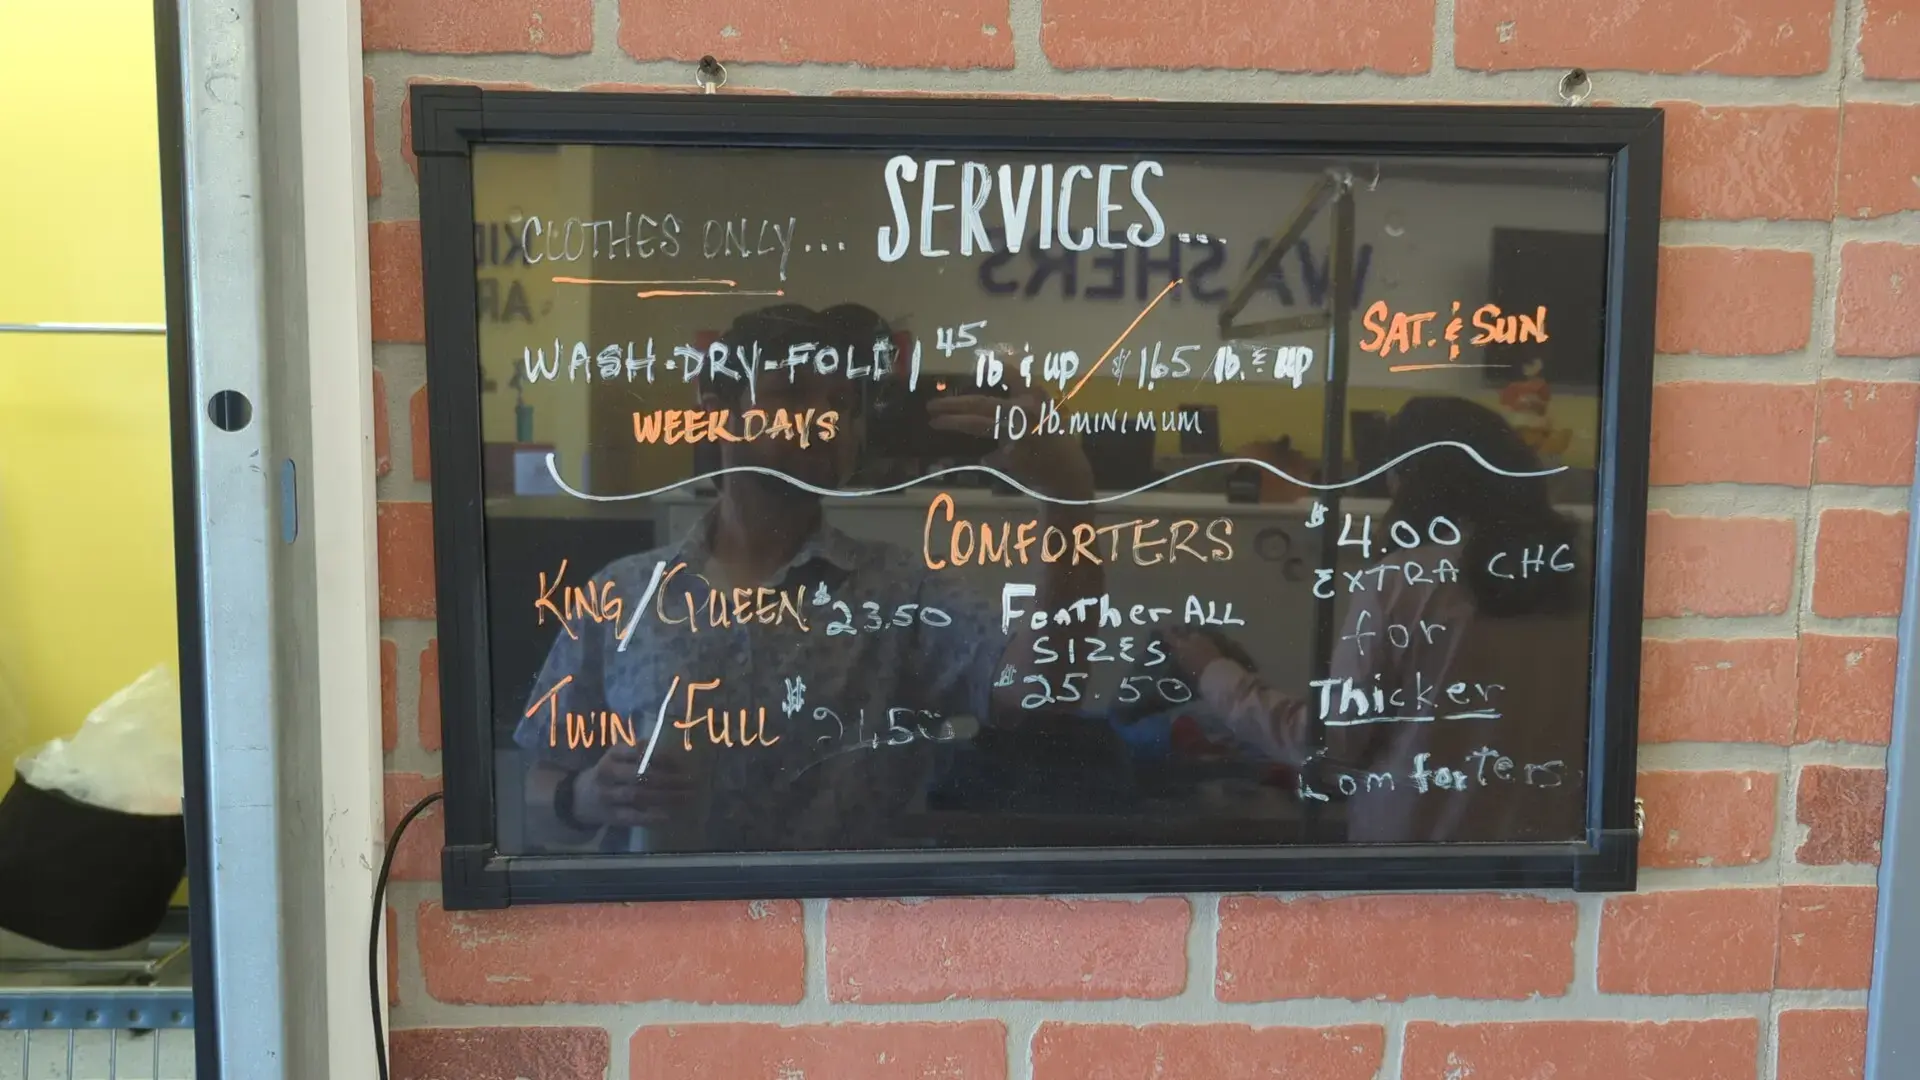 SERVICES...
CLOTHES ONLY...
WASH-DRY-FOLD 1.45 lb. & up / $1.65 /lb. & up SAT. & SUN
WEEKDAYS 10 lb. MINIMUM
COMFORTERS
KING/QUEEN $23.50
TWIN/FULL $21.50
Feather ALL
SIZES
$25.50
$4.00
EXTRA CHG
for
Thicker
Comforters
WASHERS